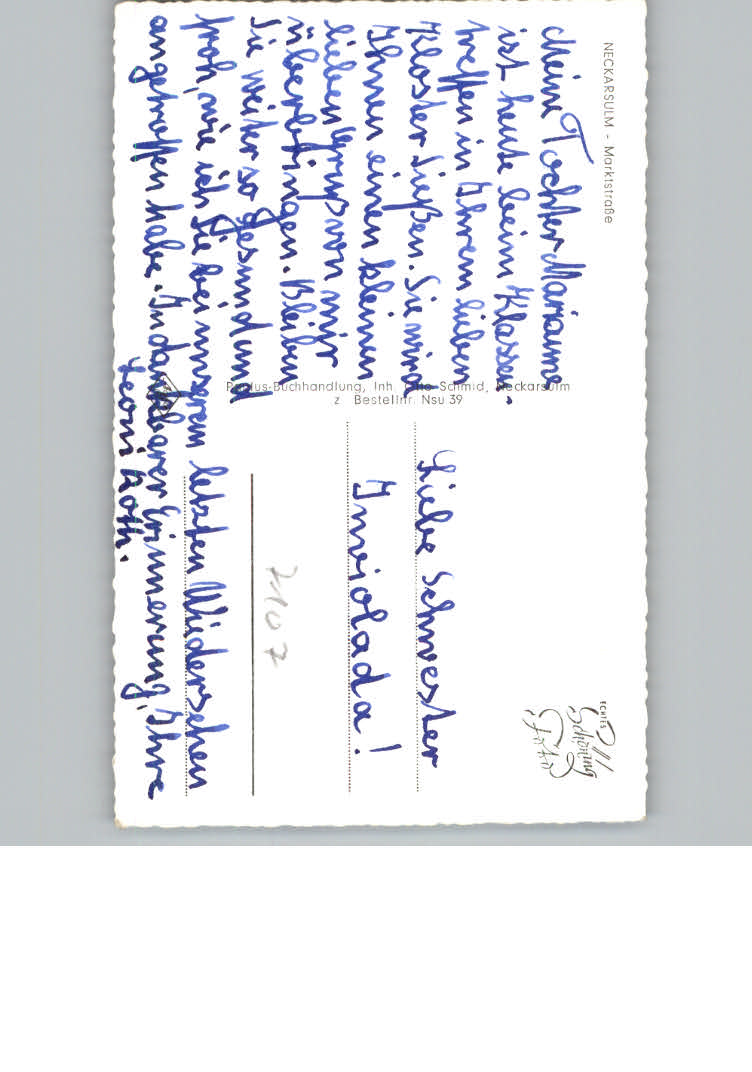 NECKARSULM - Marktstraße
Meine Tochter Marianne
ist heute beim Klassen-
treffen in Ihrem lieben
Kloster Sießen. Sie wird
Ihnen einen kleinen
lieben Gruß von mir
überbringen. Bleiben
Sie weiter so gesund und
froh, wie ich Sie bei unserem letzten Wiedersehen
angetroffen habe. In dankbarer Erinnerung, Ihre
Leoni Roth.
Paulus-Buchhandlung, Inh. Otto Schmid, Neckarsulm
z Bestellnr. Nsu 39
Liebe Schwester
Inviolada!
7107
ECHTES
Schöning
Foto